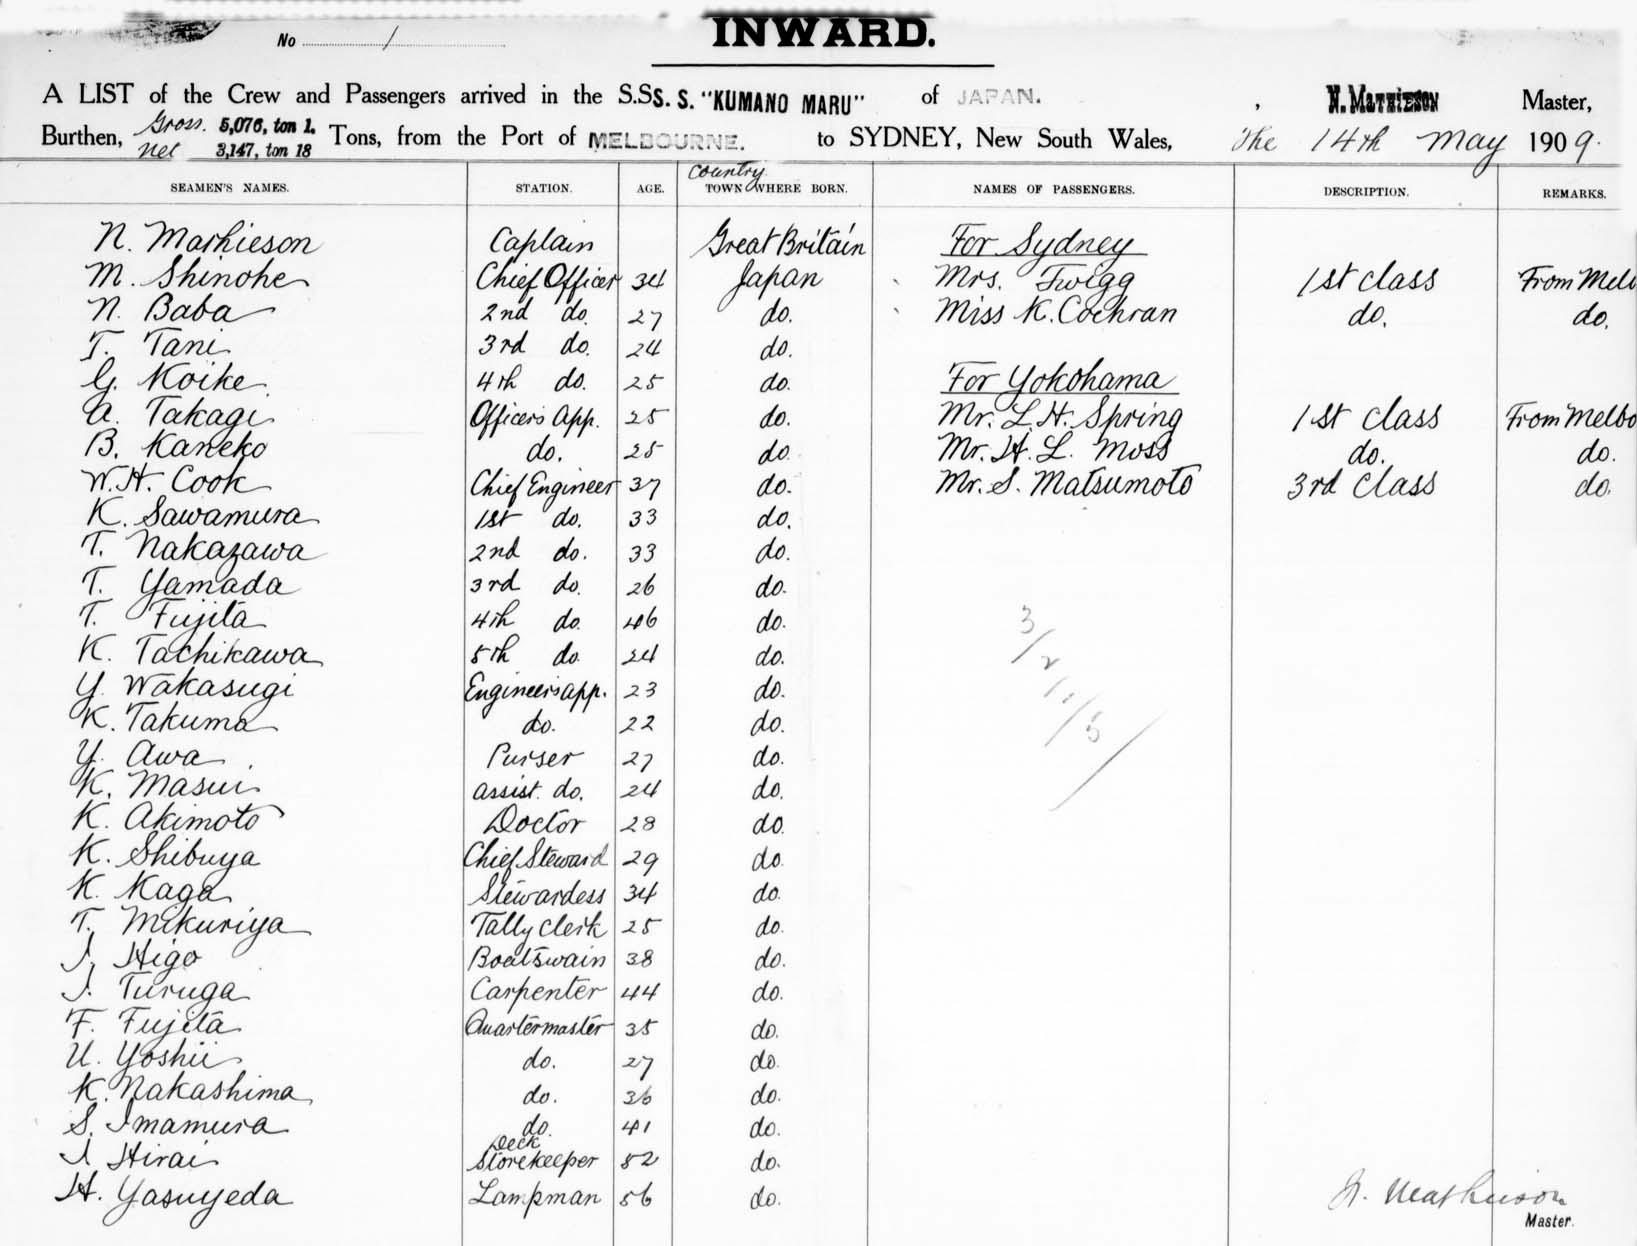 No 1
INWARD.
A LIST of the Crew and Passengers arrived in the S.S. S. S. "KUMANO MARU" of JAPAN. , N. MATHIESON Master,
Burthen, Gross. 5,076, ton 1. Net 3,147, ton 18 Tons, from the Port of MELBOURNE. to SYDNEY, New South Wales, The 14th May 1909.
SEAMEN'S NAMES. STATION. AGE. Country TOWN WHERE BORN. NAMES OF PASSENGERS. DESCRIPTION. REMARKS.
N. Mathieson Captain Great Britain For Sydney
M. Shinohe Chief Officer 34 Japan Mrs. Twigg 1st class From Melb
N. Baba 2nd do. 27 do. Miss K. Cochran do. do.
T. Tani 3rd do. 24 do.
G. Koike 4th do. 25 do. For Yokohama
A. Takagi Officers App. 25 do. Mr. L. H. Spring 1st class From Melbo
B. Kaneko do. 25 do. Mr. H. L. Moss do. do.
W. H. Cook Chief Engineer 37 do. Mr. S. Matsumoto 3rd class do.
K. Sawamura 1st do. 33 do.
T. Nakazawa 2nd do. 33 do.
T. Yamada 3rd do. 26 do.
T. Fujita 4th do. 46 do.
K. Tachikawa 5th do. 24 do.
Y. Wakasugi Engineers app. 23 do.
K. Takuma do. 22 do.
Y. Awa Purser 27 do.
K. Masui assist. do. 24 do.
K. Akimoto Doctor 28 do.
K. Shibuya Chief Steward 29 do.
K. Kaga Stewardess 34 do.
T. Mikuriya Tally clerk 25 do.
I. Higo Boatswain 38 do.
I. Turuga Carpenter 44 do.
F. Fujita Quartermaster 35 do.
U. Yoshii do. 27 do.
K. Nakashima do. 36 do.
S. Imamura do. 41 do.
I Hirai Deck Storekeeper 52 do.
H. Yasuyeda Lampman 56 do.
N. Mathieson
Master.